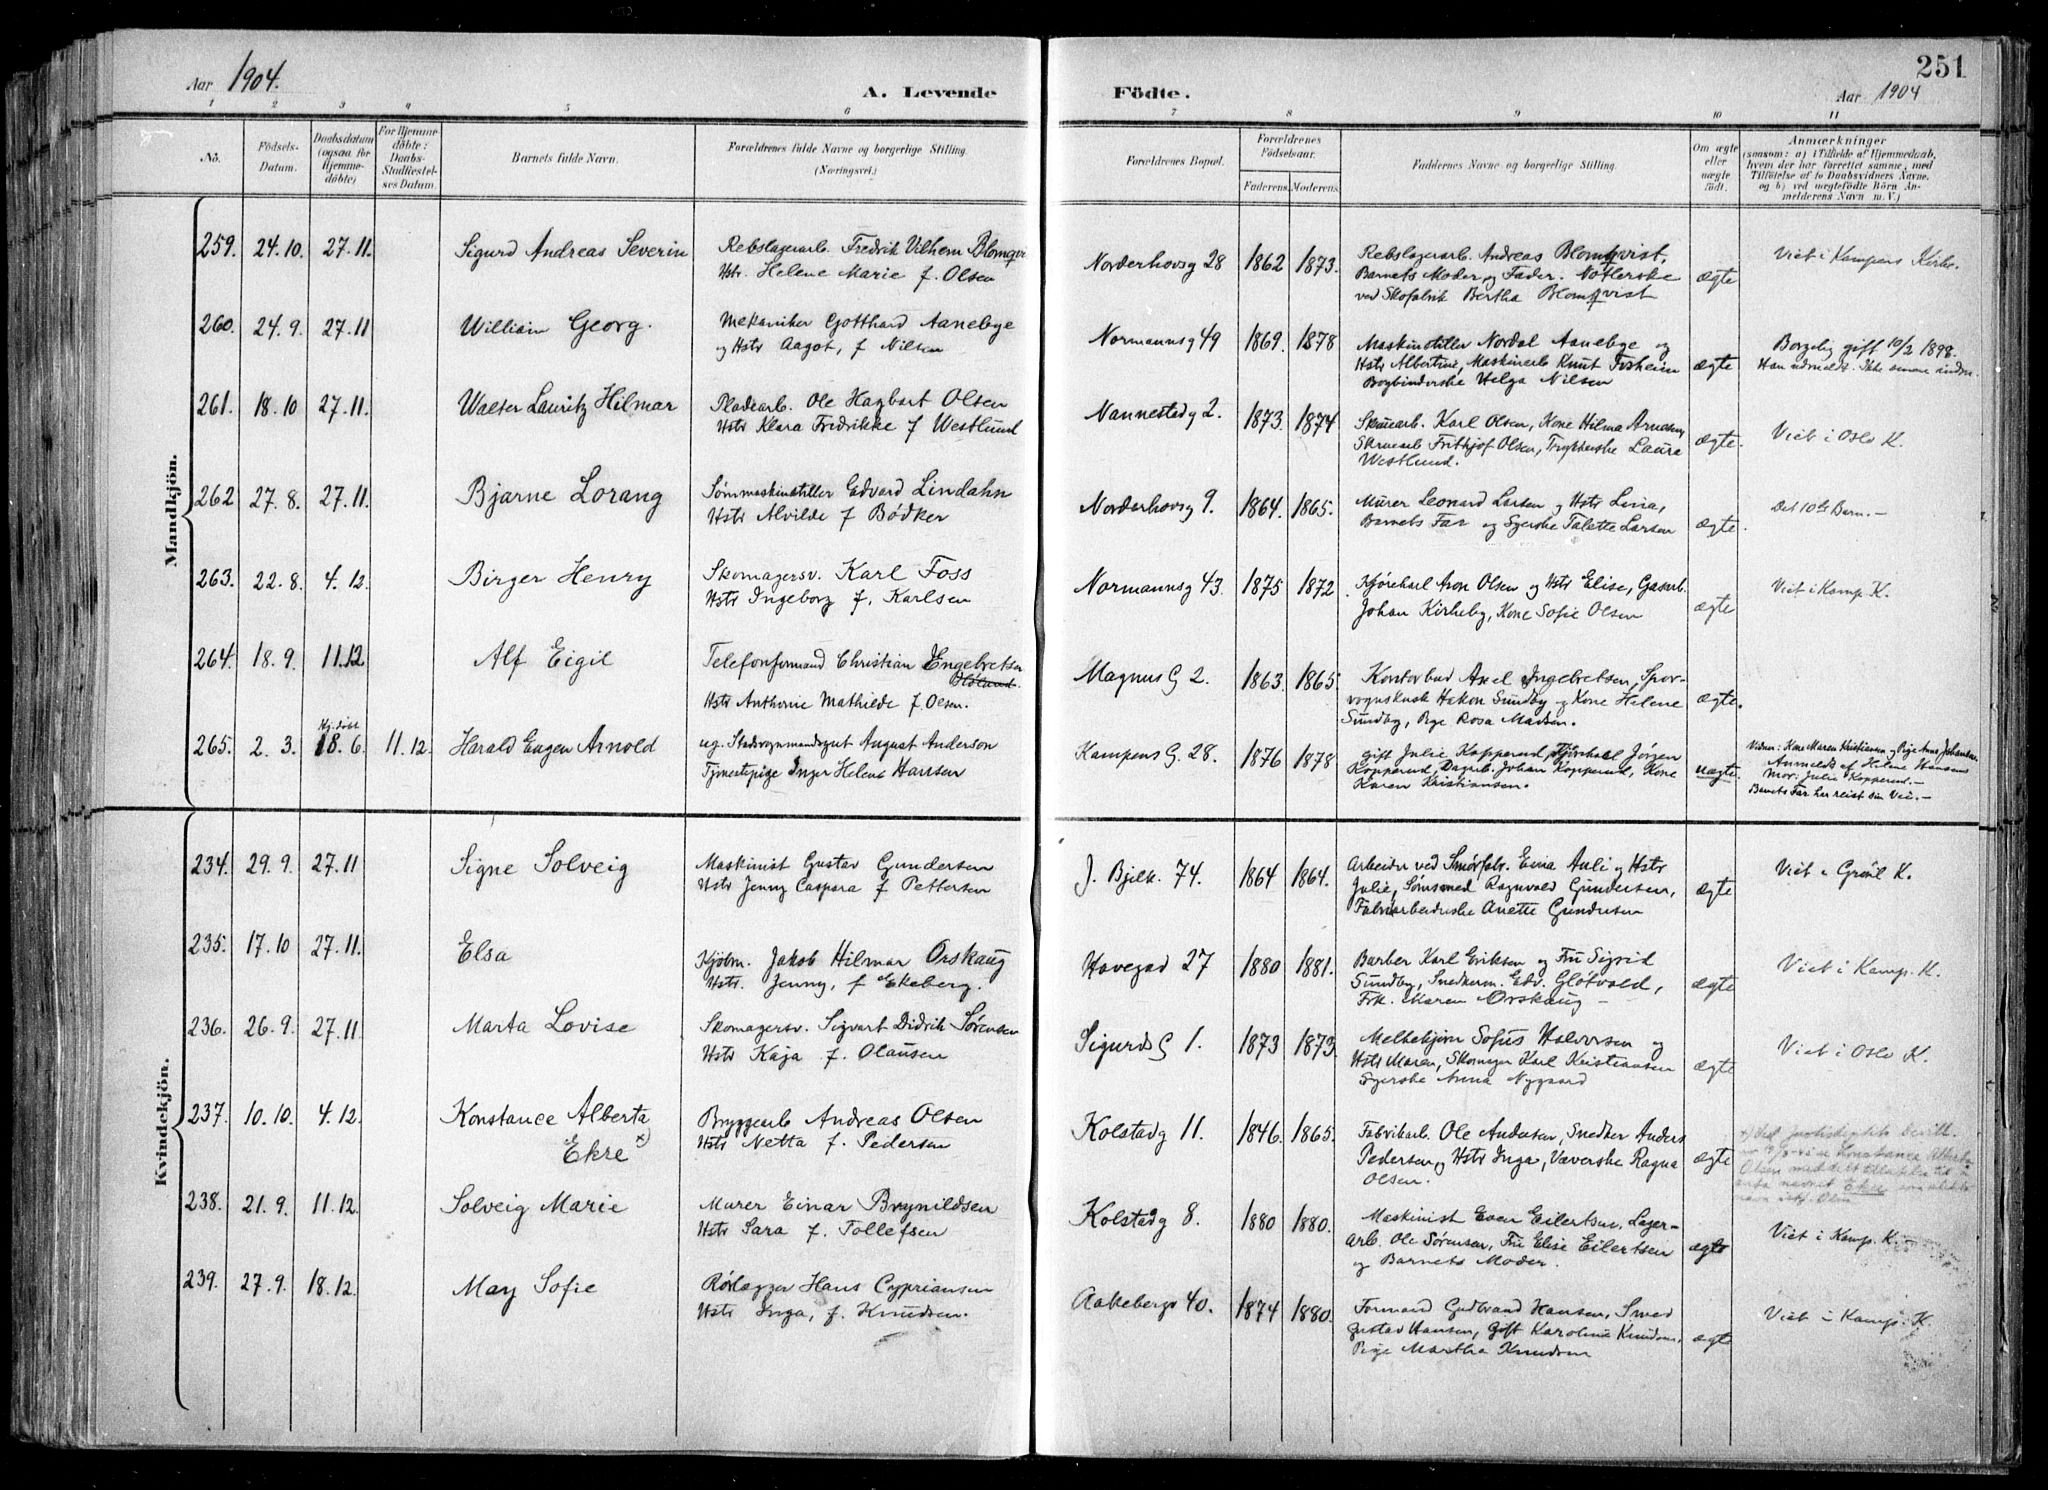 251
Aar 1904.
A. Levende Födte.
Aar 1904
1 2 3 4 5 6 7 8 9 10 11
No.
Födsels-
Datum.
Daabsdatum
(ogsaa for
Hjemme-
döbte)
For Hjemme-
döbte:
Daabs-
Stadfæstel-
ses Datum.
Barnets fulde Navn.
Forældrenes fulde Navne og borgerlige Stilling.
(Næringsvei.)
Forældrenes Bopæl.
Forældrenes
Födselsaar.
Faderens. Moderens.
Faddernes Navne og borgerlige Stilling.
Om ægte
eller
uægte
født.
Anmærkninger
(saasom: a) i Tilfælde af Hjemmedaab,
hvem der har forrettet samme, med
Tilföielse af to Daabsvidners Navne,
og b) ved uægtefödte Börn An-
melderens Navn m. V.)
Mandkjön.
259. 24.10. 27.11. Sigurd Andreas Severin
Rebslagerarb. Fredrik Vilhem Blomqvi
Hstr. Helene Marie f. Olsen
Norderhovsg 28 1862 1873.
Rebslagerarb. Andreas Blomqvist,
Barnets Moder og Fader.
ved Skofabrik Bertha Blomqvist
ægte
Viet i Kampens Kirke.
260. 24.9. 27.11 William Georg.
Mekaniker Gotthard Aanebye
og Hstr Aagot, f Nilsen
Normannsg 49 1869. 1878
Maskinstiller Nordal Aanebye og
Hstr Albertine, Maskinarb Knut Fosheim
Bogbinderske Helga Nilsen
ægte
Borgelig gift 10/2 1898.
Han udmeldt. Ikke senere
261. 18.10 27.11. Walter Lauritz Hilmar
Pladearb. Ole Hagbart Olsen
Hstr Klara Fredrikke f Westlund
Nannestadg 2. 1873. 1874
Karl Olsen, Kone Hilma Arnesen,
Skruearb Frithjof Olsen, Trykkerske Laura
Westlund.
ægte.
Viet i Oslo K.
262 27.8. 27.11. Bjarne Lorang
Sømmaskinstiller Edvard Lindahn
Hstr Alvilde f Bødker
Norderhovsg 9. 1864. 1865.
Murer Leonard Larsen og Hstr Lina,
Barnets Far og Syerske Talette Larsen
ægte.
Det 10de Barn.-
263. 22.8. 4.12. Birger Henry
Skomagersv. Karl Foss
Hstr Ingeborg f. Karlsen
Normannsg 43. 1875 1872.
Kjørekarl Aron Olsen og Hstr Elise, Gasarb.
Johan Kirkeby, Kone Sofie Olsen
ægte
Viet i Kamp. K.
264. 18.9. 11.12 Alf Eigil
Telefonformand Christian Engebretsen
Hstr Anthonie Mathilde f. Olsen.
Magnus G 2. 1863. 1865.
Kontorbud Axel Ingebretsen, Spor-
vognskusk Hakon Sundby og Kone Helene
Sundby, Pige Rosa Madsen.
ægte.
Hj. døbt
265. 2.3. 18.6. 11.12. Harald Eugen Arnold
ug. August Anderson
Tjenestepige Inger Helene Hansen
Kampens G. 28. 1876 1878
gift Julie Kopperud, Jørgen
Kopperud, Dagarb. Johan Kopperud, Kone
Karen Kristiansen.
uægte.
Vidner: Kone Maren Kristiansen og Pige Anna Johansen
Anmeldt af Helene Hansens
Mor: Julie Kopperud.-
Barnets Far har reist sin Vei.-
Kvindekjön.
234. 29.9. 27.11 Signe Solveig
Maskinist Gustav Gundersen
Hstr Jenny Caspara f Pettersen
J. Bjelk. 74. 1864 1864.
Arbeider ved Smørfabr. Auli og Hstr
Julie, Ragnvald Gundersen,
Fabrikarbeiderske Anette Gundersen
ægte
Viet i Grønl K.
235. 17.10 27.11. Elsa
Kjøbm. Jakob Hilmar Orskaug
Hstr. Jenny, f Ekeberg.
Havegad 27 1880 1881.
Barber Karl Eriksen og Fru Sigrid
Sundby, Snedkerm. Edv. Gløtvold,
Frk. Maren Orskaug -
ægte
Viet i Kamp. K.
236. 26.9. 27.11 Marta Lovise
Skomagersv. Sigvart Didrik Sørensen
Hstr Kaja f. Olausen
Sigurds G 1. 1873 1873.
Melkekjører Sofus Halvorsen og
Hstr Maren, Skomager Karl Kristiansen
Syerske Anna Nygaard
ægte
Viet i Oslo K.
237. 10.10. 4.12. Konstance Alberta
Ekre x)
Bryggearb Andreas Olsen
Hstr Netta f. Pedersen
Kolstadg 11. 1846. 1865.
Fabrikarb. Ole Andersen, Snedker Anders
Pedersen og Hstr Inga, Væverske Ragna
Olsen.
ægte
x) Ved Justisdeptets bevill.
Konstance Alberta
Olsen meddelt tilladelse til å
anta navnet Ekre som slekts-
navn istf. Olsen
238. 21.9. 11.12. Solveig Marie
Murer Einar Brynildsen
Hstr Sara f. Tollefsen
Kolstadg 8. 1880 1880.
Maskinist Even Eilertsen, Lager-
arb. Ole Sørensen, Fru Elise Eilertsen
og Barnets Moder.
ægte
Viet i Kamp. K.
239. 27.9. 18.12. May Sofie
Rørlægger Hans Cypriansen
Hstr Inga, f. Knudsen.
Aakebergv 40. 1874 1880.
Formand Gudbrand Hansen, Smed
Gustav Hansen, Gift Karoline Knudsen,
Pige Martha Knudsen
ægte
Viet i Kamp. K.